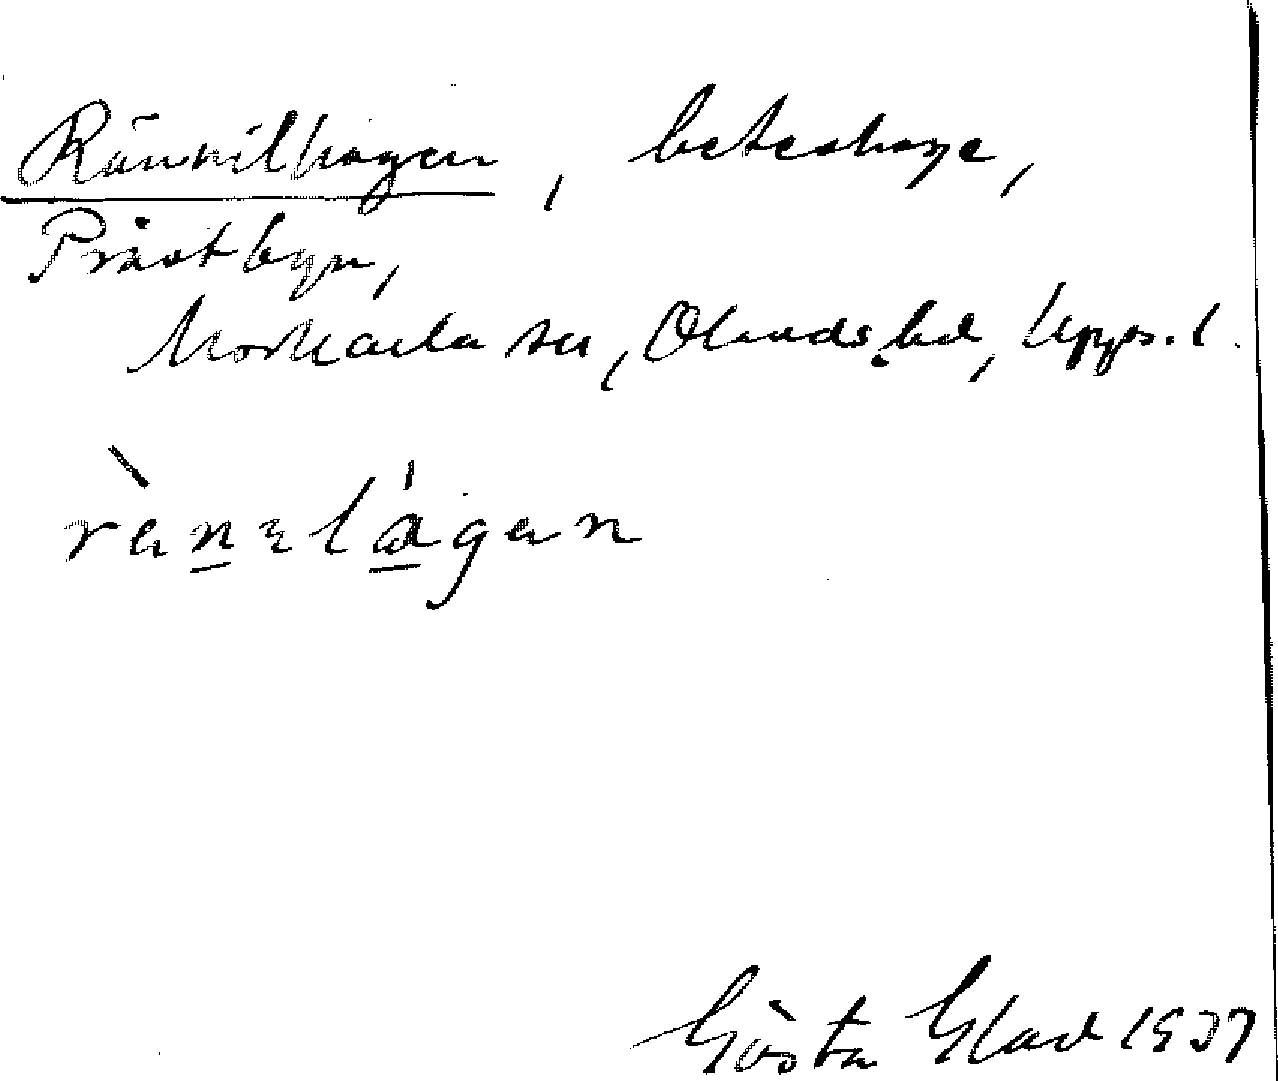 Rännilhagen, beteshage,
Prästbyn,
Morkarla sn, Olands hd, Upps. l.
Gösta Glad 1937